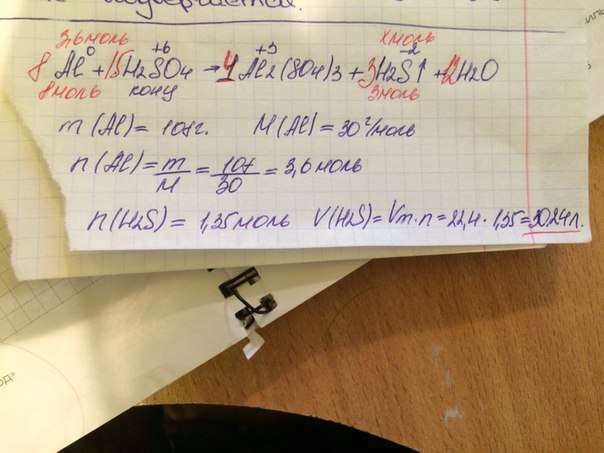 3,6 моль х моль
0 +6 +3 -2
8Al + 15H2SO4 → 4Al2(SO4)3 + 3H2S↑ + 12H2O
8 моль конц 3 моль
m(Al) = 108г. M(Al) = 30 г/моль
n(Al) = m/M = 108/30 = 3,6 моль
n(H2S) = 1,35 моль V(H2S) = Vm · n = 22,4 · 1,35 = 30,24 л.